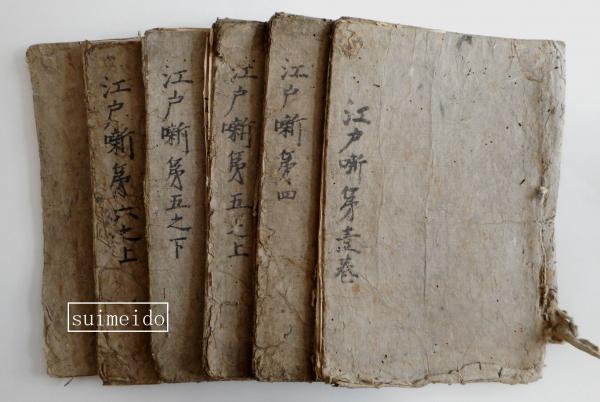 江戸噺第壹巻
江戸噺第四
江戸噺第五之上
江戸噺第五之下
江戸噺第六之上
suimeido